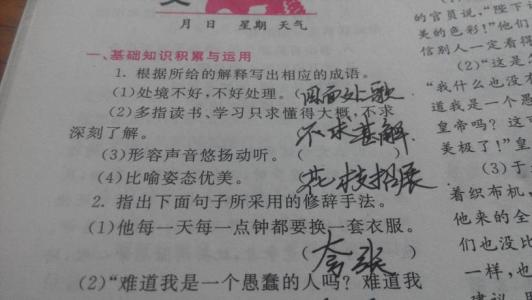 月 日 星期 天气
一、基础知识积累与运用
1. 根据所给的解释写出相应的成语。
(1)处境不好,不好处理。(四面处歌
(2)多指读书、学习只求懂得大概,不求
深刻了解。 不求甚解
(3)形容声音悠扬动听。( )
(4)比喻姿态优美。 花枝招展
2. 指出下面句子所采用的修辞手法。
(1)他每一天每一点钟都要换一套衣服。
(夸张)
(2)“难道我是一个愚蠢的人吗? 难道我
的官员说,“陛下
美的色彩!”他们
信别人一定看得
(2)“这是
“我什么也没
道我是一个愚
皇帝吗? 这可
美极了!”皇
(3)于
着织布机,
他来的全
们也没比
一样,也